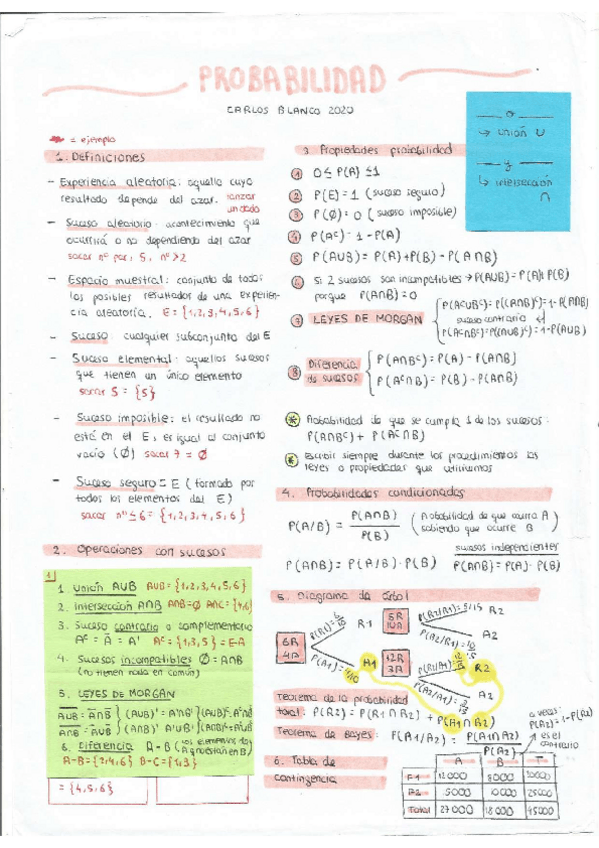 PROBABILIDAD
CARLOS BLANCO 2020
= ejemplo
1. Definiciones
- Experiencia aleatoria: aquella cuyo
resultado depende del azar. lanzar
un dado
- Suceso aleatorio: acontecimiento que
ocurrirá o no dependiendo del azar
sacar nº par, 5, nº>2
- Espacio muestral: conjunto de todos
los posibles resultados de una experien-
cia aleatoria. E = {1,2,3,4,5,6}
- Suceso: cualquier subconjunto del E
- Suceso elemental: aquellos sucesos
que tienen un único elemento
sacar 5 = {5}
- Suceso imposible: el resultado no
está en el E, es igual al conjunto
vacío (Ø) sacar 7 = Ø
- Suceso seguro = E (formado por
todos los elementos del E)
sacar nº ≤ 6 = {1,2,3,4,5,6}
2. Operaciones con sucesos
1
1. Unión AUB AUB = {1,2,3,4,5,6}
2. Intersección A∩B A∩B=Ø A∩C={4,6}
3. Suceso contrario o complementario
Aᶜ = Ā = A' Aᶜ = {1,3,5} = E-A
4. Sucesos incompatibles Ø = A∩B
(no tienen nada en común)
5. LEYES DE MORGAN
6. Diferencia A-B (los elementos de A q no están en B)
A-B = {2,4,6} B-C = {1,3}
= {4,5,6}
3. Propiedades probabilidad
o
→ unión U
y
↳ intersección
∩
1 0 ≤ P(A) ≤ 1
2 P(E) = 1 (suceso seguro)
3 P(Ø) = 0 (suceso imposible)
4 P(Aᶜ) = 1 - P(A)
5 P(AUB) = P(A) + P(B) - P(A∩B)
6 si 2 sucesos son incompatibles → P(AUB) = P(A)+P(B)
porque P(A∩B) = 0
7 LEYES DE MORGAN { P(AᶜUBᶜ) = P((A∩B)ᶜ) = 1-P(A∩B)
suceso contrario
P(Aᶜ∩Bᶜ) = P((AUB)ᶜ) = 1-P(AUB)
8 Diferencia de sucesos { P(A∩Bᶜ) = P(A) - P(A∩B)
P(Aᶜ∩B) = P(B) - P(A∩B)
* Probabilidad de que se cumpla 1 de los sucesos:
P(A∩Bᶜ) + P(Aᶜ∩B)
* Escribir siempre durante los procedimientos las
leyes o propiedades que utilizamos
4. Probabilidades condicionadas
P(A/B) = P(A∩B) / P(B) (Probabilidad de que ocurra A sabiendo que ocurre B)
sucesos independientes
P(A∩B) = P(A/B) · P(B) P(A∩B) = P(A) · P(B)
5. Diagrama de árbol
6R
4A
P(R1) = 6/10 R1
P(A1) = 4/10 A1
5R
10A
P(R2/R1) = 5/15 R2
P(A2/R1) = 10/15 A2
12R
3A
P(R2/A1) = 12/15 R2
P(A2/A1) = 3/15 A2
Teorema de la probabilidad
total: P(R2) = P(R1∩A2) + P(A1∩A2)
Teorema de Bayes: P(A1/A2) = P(A1∩A2) / P(A2)
o veces:
P(A2) = 1-P(R2)
es el
contrario
6. Tabla de
contingencia
A B T
F1 12000 8000 20000
F2 5000 10000 25000
Total 27000 18000 45000